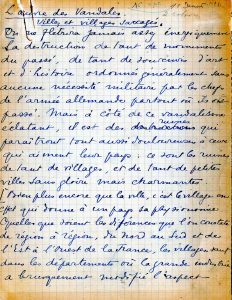 L'œuvre des Vandales.
Villes et villages saccagés.
On ne flétrira jamais assez énergiquement
la destruction de tant de monuments
du passé, de tant de souvenirs d'art
et d'histoire ordonnés généralement sans
aucune nécessité militaire par les chefs
de l'armée allemande partout où ils ont
passé. Mais à côté de ce vandalisme
éclatant, il est des ruines qui
paraîtront tout aussi douloureuses à ceux
qui aiment leur pays: ce sont les ruines
de tant de villages, et de tant de petites
villes sans gloire mais charmantes.
Bien plus encore que la ville, c'est le village en
effet qui donne à un pays sa physionomie.
Quelles que soient les différences que l'on constate
de région à région, du Nord au Sud et de
l'Est à l'Ouest de la France, les villages sont
dans les départements où la grande
a brusquement modifié l'aspect